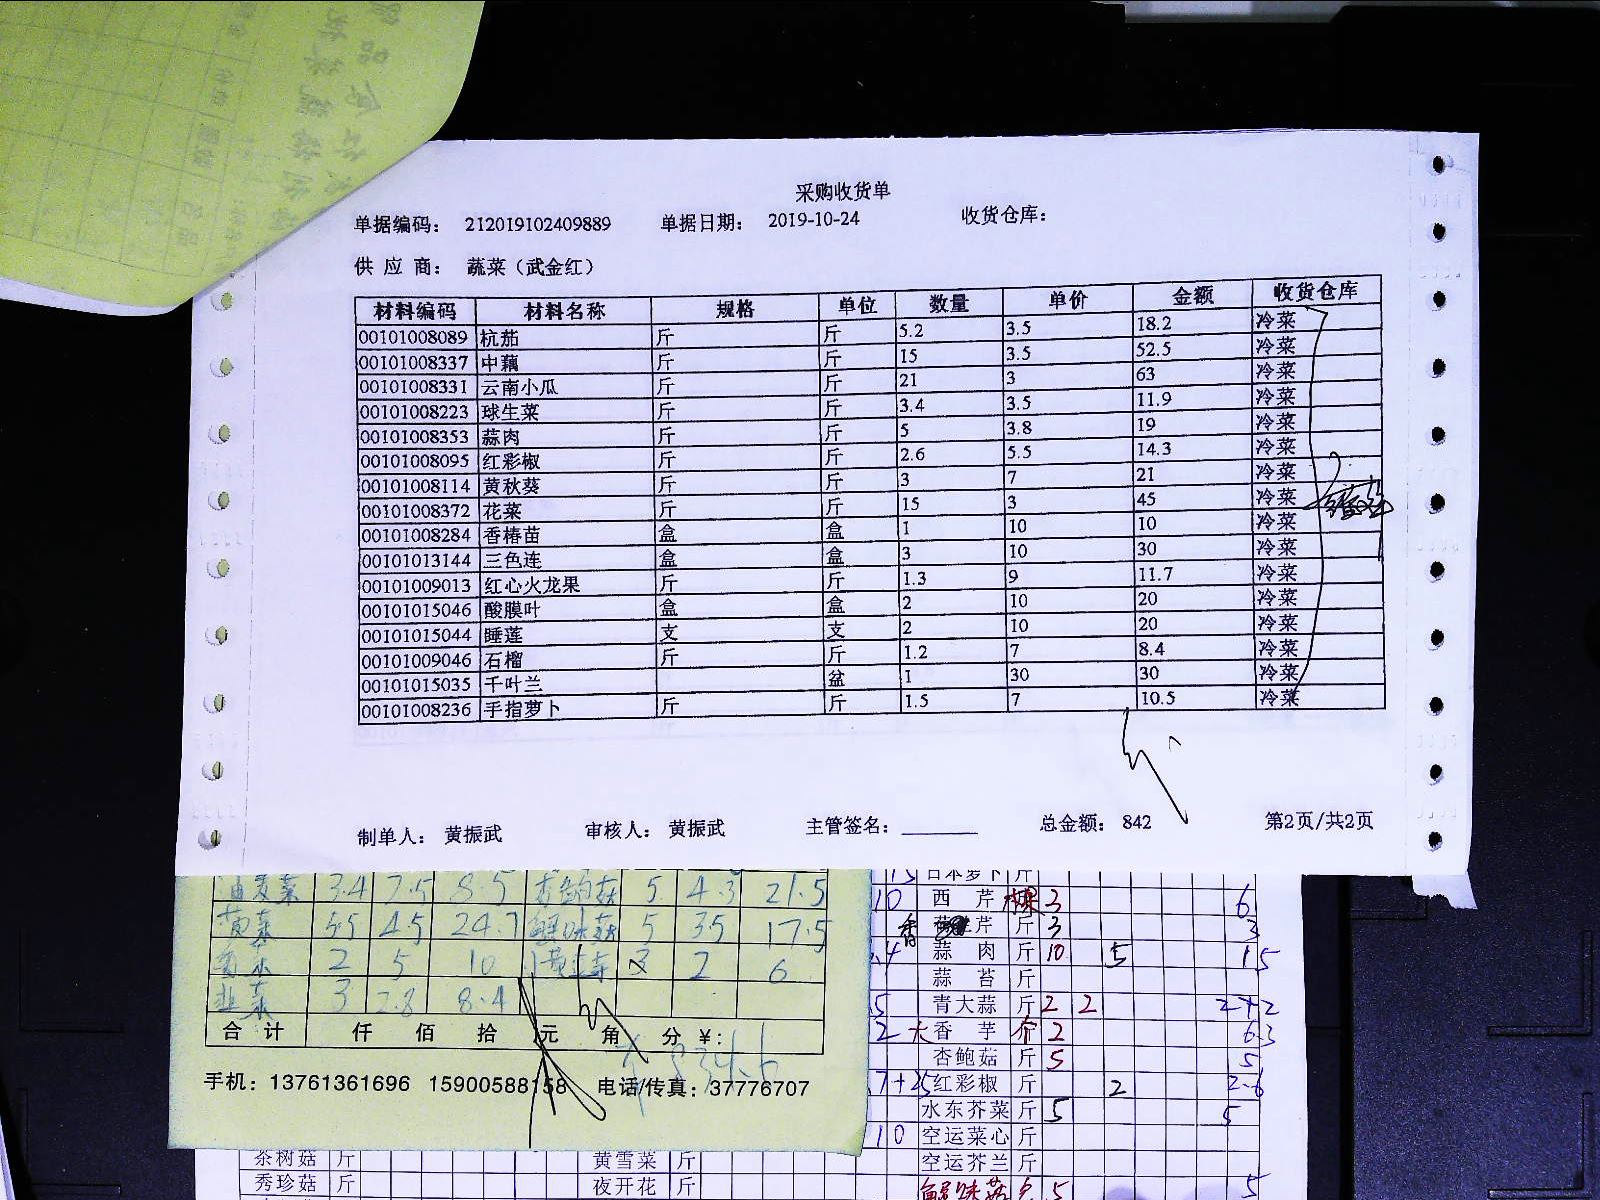 采购收货单
单据编码： 212019102409889 单据日期： 2019-10-24 收货仓库：
供 应 商： 蔬菜（武金红）
材料编码 材料名称 规格 单位 数量 单价 金额 收货仓库
00101008089 杭茄 斤 斤 5.2 3.5 18.2 冷菜
00101008337 中藕 斤 斤 15 3.5 52.5 冷菜
00101008331 云南小瓜 斤 斤 21 3 63 冷菜
00101008223 球生菜 斤 斤 3.4 3.5 11.9 冷菜
00101008353 蒜肉 斤 斤 5 3.8 19 冷菜
00101008095 红彩椒 斤 斤 2.6 5.5 14.3 冷菜
00101008114 黄秋葵 斤 斤 3 7 21 冷菜
00101008372 花菜 斤 斤 15 3 45 冷菜
00101008284 香椿苗 盒 盒 1 10 10 冷菜
00101013144 三色连 盒 盒 3 10 30 冷菜
00101009013 红心火龙果 斤 斤 1.3 9 11.7 冷菜
00101015046 酸膜叶 盒 盒 2 10 20 冷菜
00101015044 睡莲 支 支 2 10 20 冷菜
00101009046 石榴 斤 斤 1.2 7 8.4 冷菜
00101015035 千叶兰 盆 1 30 30 冷菜
00101008236 手指萝卜 斤 斤 1.5 7 10.5 冷菜
制单人： 黄振武 审核人： 黄振武 主管签名： 总金额： 842 第2页/共2页
油麦菜 3.4 2.5 8.5 杏鲍菇 5 4.3 21.5
5.5 4.5 24.7 蟹味菇 5 3.5 17.5
2 5 10 3 2 6
韭菜 3 2.8 8.4
合 计 仟 佰 拾 元 角 分 ￥: 834.6
手机：13761361696 15900588158 电话/传真：37776707
日本萝卜 斤
10 西 芹 棵 3 6
香 芹 斤 3 3
蒜 肉 斤 10 5 15
蒜 苔 斤
青大蒜 斤 2 2 2+2
大香芋 个 2 6.3
杏鲍菇 斤 5 5
红彩椒 斤 2 2.6
水东芥菜 斤 5 5
10 空运菜心 斤
空运芥兰 斤
蟹味菇 5 5
茶树菇 斤 黄雪菜 斤
秀珍菇 斤 夜开花 斤